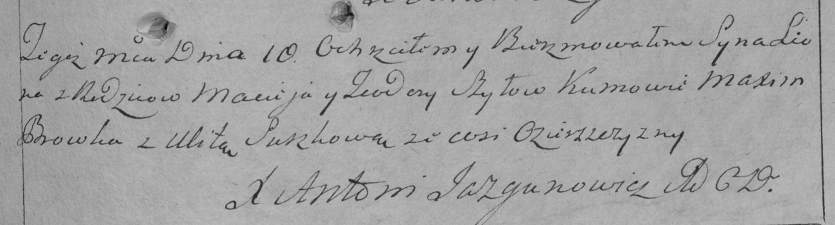 Tegoż mca Dnia 10. Ochrzciłem y Bierzmowałem Syna Leo
na z Rodzicow Macieja y Teodory Szyłow Kumowie Maxim
Browka z Ulitą Suszkową ze wsi
X Antoni Jazgunowicz